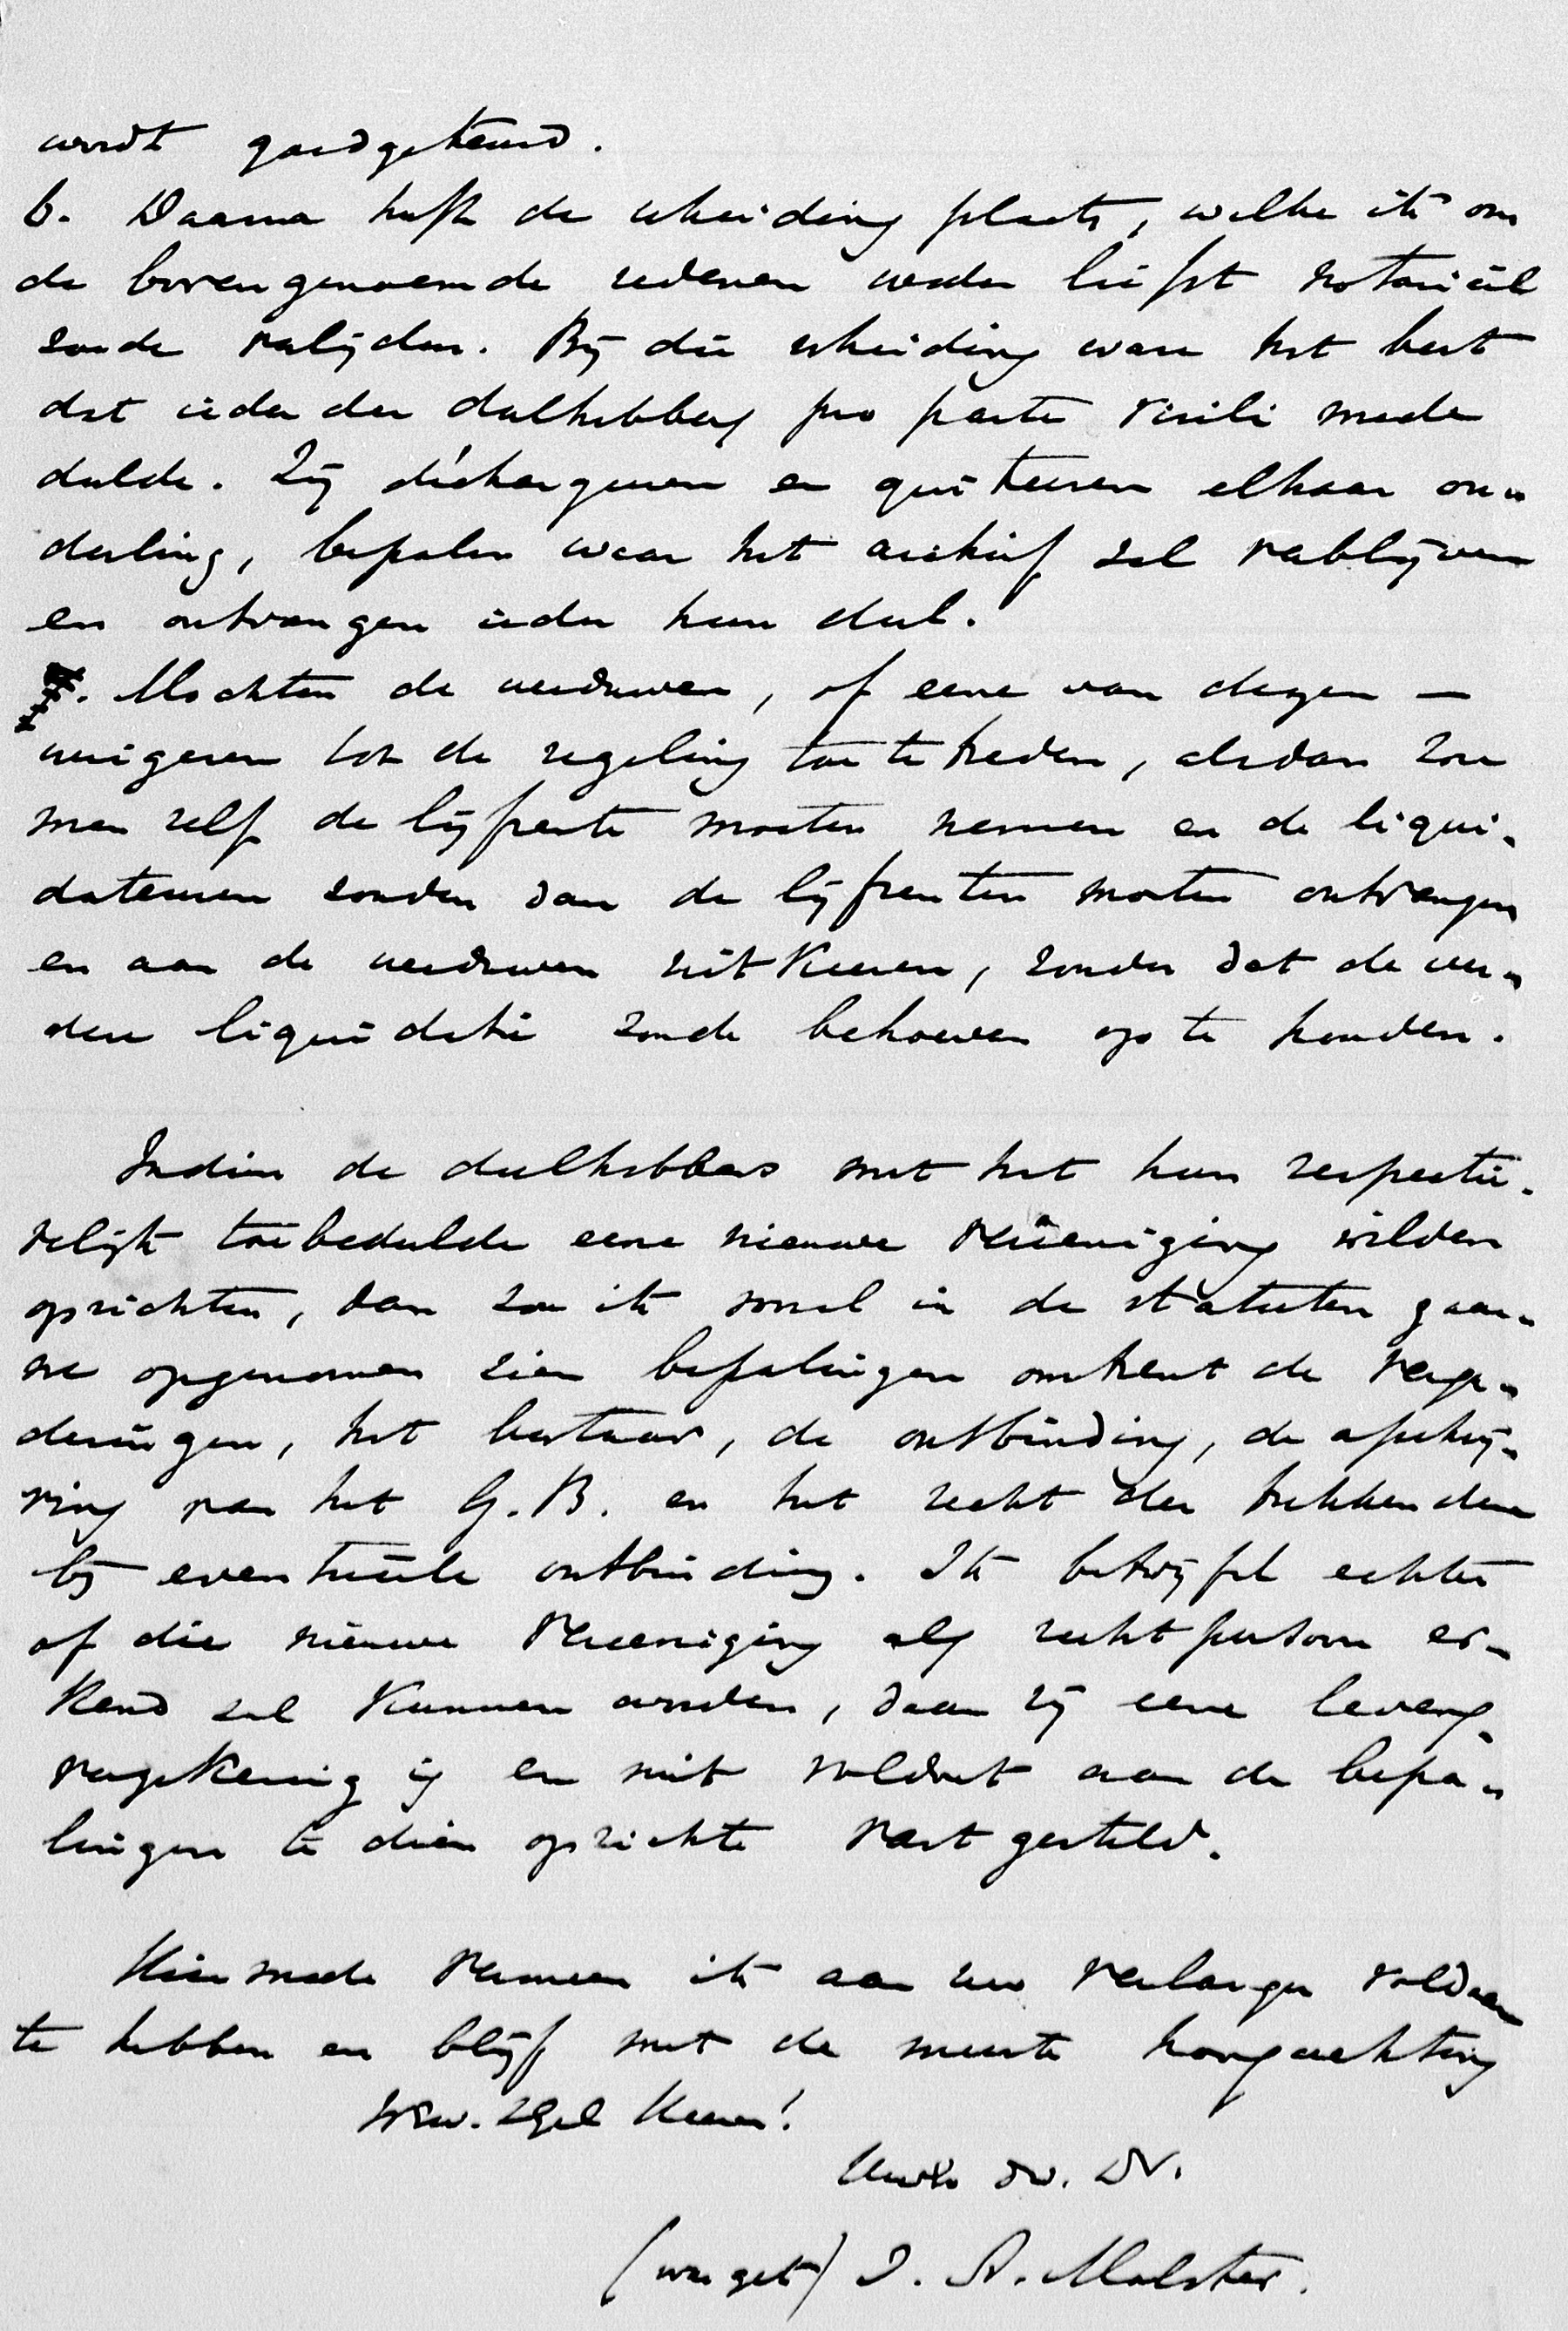 wordt goedgekeurd.
6. Daarna heeft de scheiding plaats, welke ik om
de bovengenoemde redenen weder liefst notariëel
zoude verlijden. Bij die scheiding ware het best
dat ieder der deelhebbers pro parte virili mede
deelde. Zij déchargeeren en quiteeren elkaar on-
derling, bepalen waar het archief zal verblijven
en ontvangen ieder hun deel.
7. Mochten de weduwen, of eene van dezen —
weigeren tot de regeling toe te treden, alsdan zou
men zelf de lijfrente moeten nemen en de liqui-
dateuren zouden dan de lijfrenten moeten ontvangen
en aan de weduwen uitkeeren, zonder dat de ver-
dere liquidatie zoude behoeven op te houden.

Indien de deelhebbers met het hun respectie-
velijk toebedeelde eene nieuwe vereeniging wilden
oprichten, dan zou ik in de statuten gaar-
ne opgenomen zien bepalingen omtrent de verga-
deringen, het bestuur, de ontbinding, de afschrij-
ving van het G.B. en het recht der trekkenden
bij eventuëele ontbinding. Ik betwijfel echter
of die nieuwe Vereeniging als rechtpersoon er-
kend zal kunnen worden, daar zij eene levens-
verzekering is en niet voldoet aan de bepa-
lingen te dien opzichte vastgesteld.

Hiermede vermeen ik aan uw verlangen voldaan
te hebben en blijf met de meeste hoogachting
WEw. ZGel Heeren!
Uwe dw. Dr.
(was get) J. A. Molster.